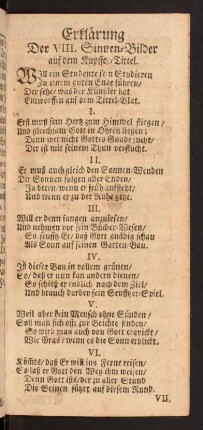 Erklärung
Der VIII. Sinnen-Bilder
auf dem Kupffer-Tittel.
Will ein Studente sein Studieren
Zu einem guten Ende führen,
Der sehe, was der Künstler hat
Entworffen auf dem Tittel-Blat.
I.
Erst muß sein Hertz zum Himmel fliegen,
Und gleichsam Gott in Ohren liegen:
Denn wer nicht Gottes Gnade sucht,
Der ist mit seinem Thun verflucht.
II.
Er muß auch gleich den Sonnen-Wenden
Der Sonnen folgen aller Enden,
Ja beten, wenn er früh aufsteht,
Und wenn er zu der Ruhe gehet.
III.
Will er denn fangen anzulesen,
Und nehmen vor sein Bücher-Wesen,
So seuffz Er, daß Gott gnädig schau
Als Sonn auf seinen Garten-Bau.
IV.
Ist dieser Bau in vollem grünen,
Daß Er er nun kan andern dienen,
So schieß er endlich nach dem Ziel,
Und brauch darbey sein Seuffzer-Spiel.
V.
Weil aber kein Mensch ohne Sünden,
Soll man sich offt zur Beichte finden,
So wird man auch von Gott erquickt,
Wie Gras, wenn es die Sonn erblickt.
VI.
Kömmts, daß Er will ins Ferne reisen,
So laß er Gott den Weg ihm weisen,
Denn Gott ists, der zu aller Stund
Die Seinen schützt auf diesem Rund.
VII.